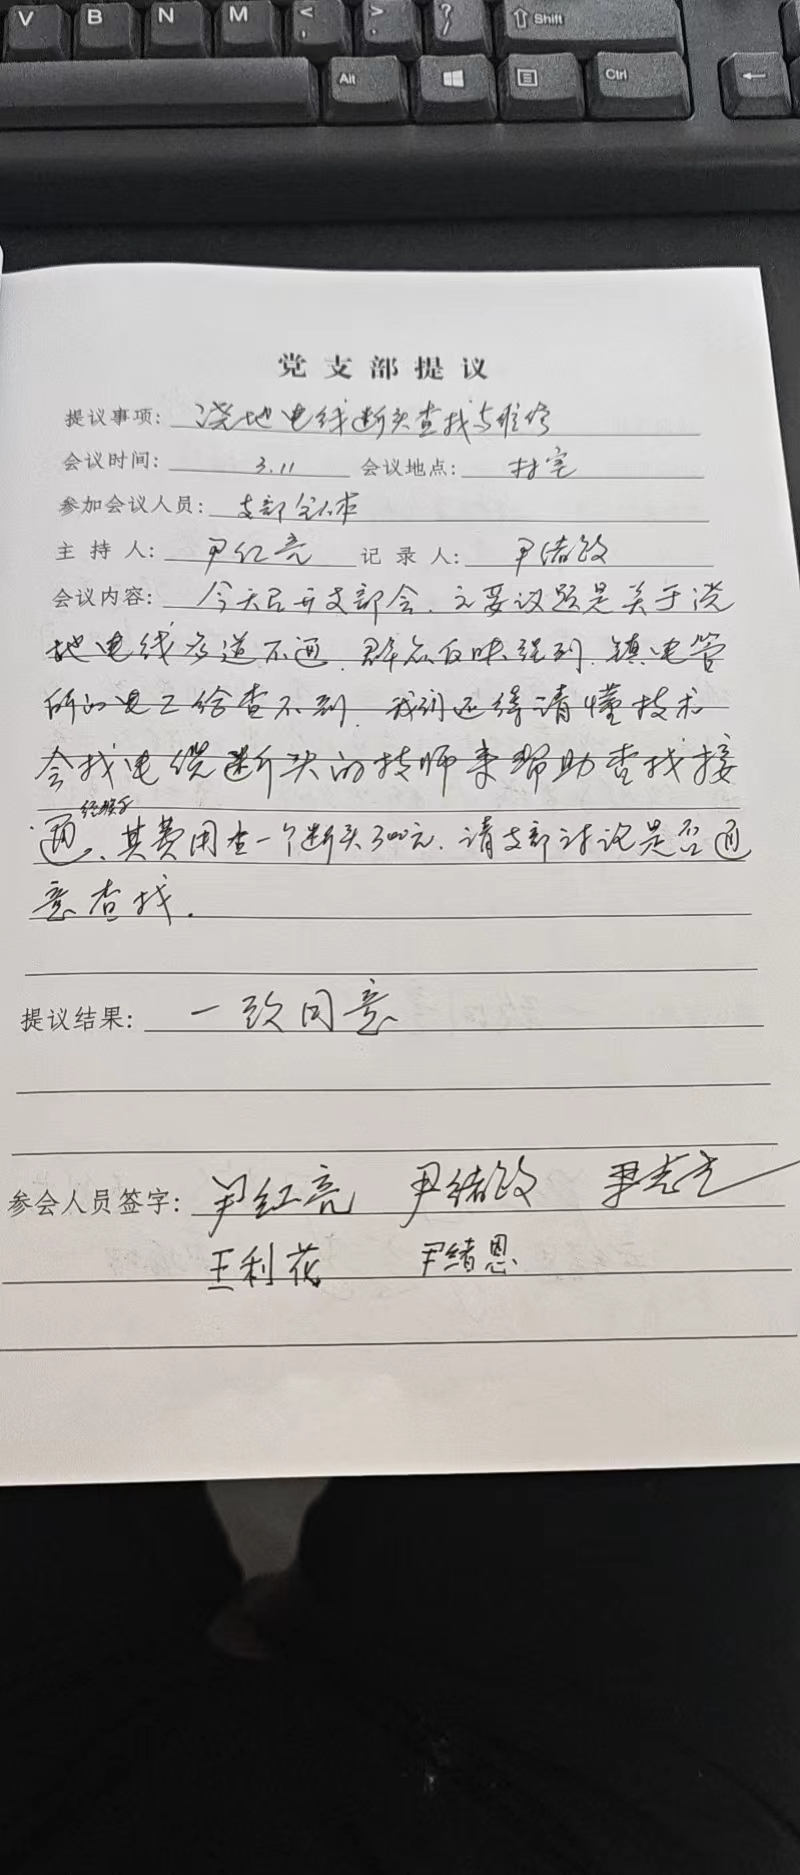 V B N M < , > . ? / ⇧ Shift
Alt Ctrl ←
党支部提议
提议事项: 浇地电线断头查找与维修
会议时间: 3.11 会议地点: 村室
参加会议人员: 支部全体
主持人: 尹红亮 记录人: 尹绪政
会议内容: 今天召开支部会、主要议题是关于浇
地电线多道不通、群众反映强烈、镇电管
所的电工给查不到、我们还得请懂技术
会找电缆断头的技师来帮助查找接
通、其费用查一个断头300元、请支部讨论是否通
意查找.
提议结果: 一致同意
参会人员签字: 尹红亮 尹绪政
王利花 尹绪恩